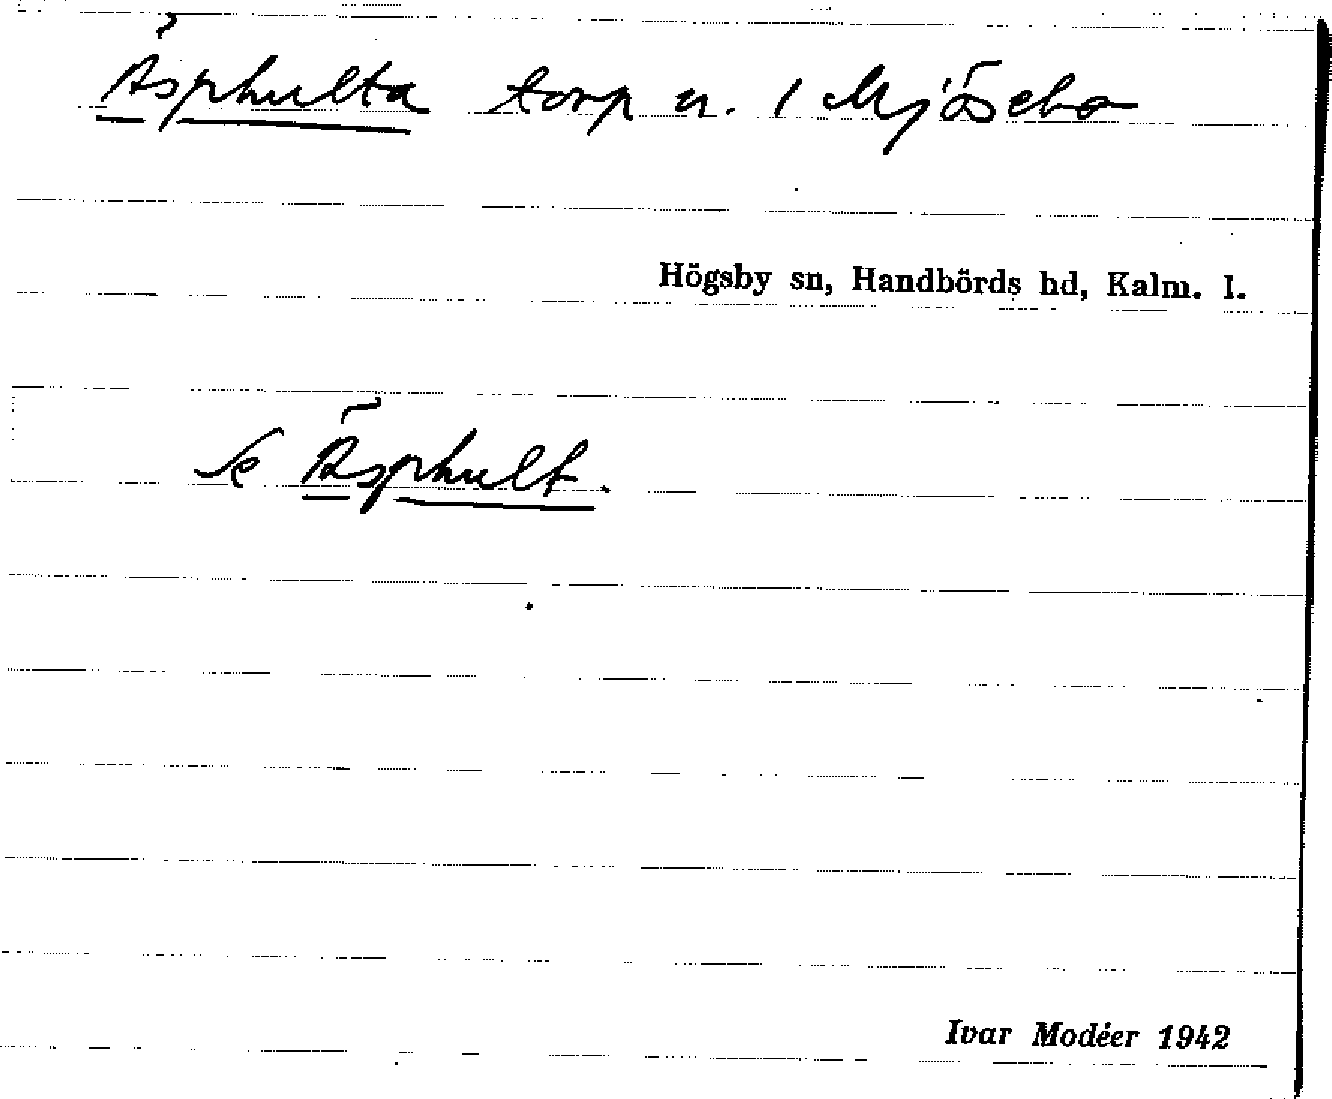 Äsphulta torp u. 1 Mjösebo
Högsby sn, Handbörds hd, Kalm. l.
Se Äsphult.
Ivar Modéer 1942